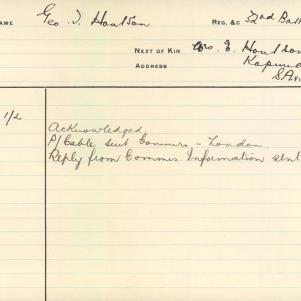 NAME Geo. J. Houlson REG. &c 32nd Batt
NEXT OF KIN Mrs. E. Houlson
ADDRESS Kapunda
S.A.
1/2
Acknowledged
P/Cable sent Commrs. - London
Reply from Commrs. Information sent